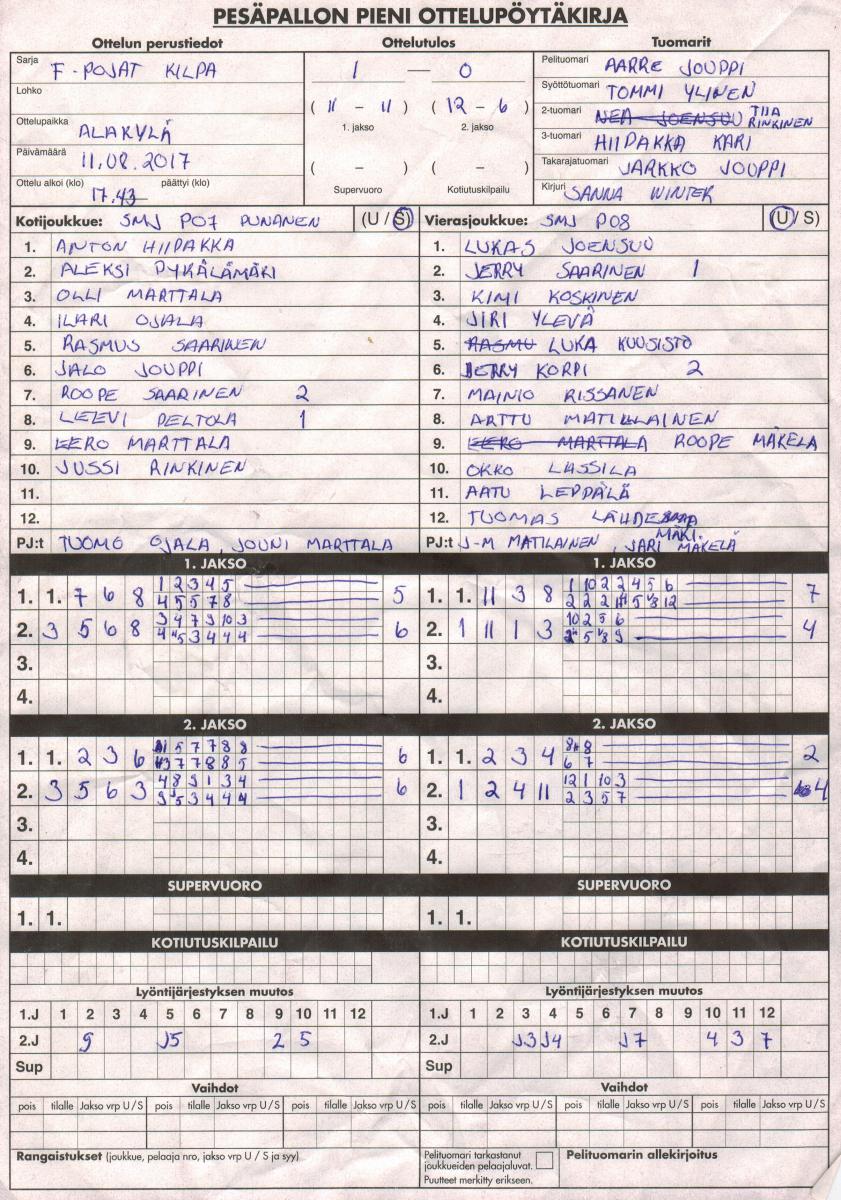 PESÄPALLON PIENI OTTELUPÖYTÄKIRJA
Ottelun perustiedot Ottelutulos Tuomarit
Sarja F-POJAT KILPA
Lohko
Ottelupaikka ALAKYLÄ
Päivämäärä 11.08.2017
Ottelu alkoi (klo) 17.43 päättyi (klo)
1 — 0
( 11 - 11 ) ( 12 - 6 )
1. jakso 2. jakso
( - ) ( - )
Supervuoro Kotiutuskilpailu
Pelituomari AARRE JOUPPI
Syöttötuomari TOMMI YLINEN
2-tuomari NEA JOENSUU TIIA RINKINEN
3-tuomari HIIPAKKA KARI
Takarajatuomari JARKKO JOUPPI
Kirjuri SANNA WINTER
Kotijoukkue: SMJ P07 PUNANEN (U / S)
1. ANTON HIIPAKKA
2. ALEKSI PYKÄLÄMÄKI
3. OLLI MARTTALA
4. ILARI OJALA
5. RASMUS SAARINEN
6. JALO JOUPPI
7. ROOPE SAARINEN 2
8. LEEVI PELTOLA 1
9. EERO MARTTALA
10. JUSSI RINKINEN
11.
12.
PJ:t TUOMO OJALA, JOUNI MARTTALA
Vierasjoukkue: SMJ P08 (U / S)
1. LUKAS JOENSUU
2. JERRY SAARINEN 1
3. KIMI KOSKINEN
4. JIRI YLEVÄ
5. RASMU LUKA KUUSISTO
6. JERRY KORPI 2
7. MAINIO RISSANEN
8. ARTTU MATILAINEN
9. EERO MARTTALA ROOPE MÄKELÄ
10. OKKO LASSILA
11. AATU LEPPÄLÄ
12. TUOMAS LÄHDEMÄKI.
PJ:t J-M MATILAINEN, JARI MÄKELÄ
1. JAKSO
1. 1. 7 6 8 1 2 3 4 5 5
4 5 5 7 8
2. 3 5 6 8 3 4 7 9 10 3 6
3.
4.
1. JAKSO
1. 1. 11 3 8 1 10 2 2 4 5 6 7
2. 1 11 1 3 10 2 5 6 4
3.
4.
2. JAKSO
1. 1. 2 3 6 6
2. 3 5 6 3 4 8 9 1 3 4 6
3.
4.
2. JAKSO
1. 1. 2 3 4 2
6 7
2. 1 2 4 11 12 1 10 3 4
2 3 5 7
3.
4.
SUPERVUORO SUPERVUORO
1. 1. 1. 1.
KOTIUTUSKILPAILU KOTIUTUSKILPAILU
Lyöntijärjestyksen muutos
1.J 1 2 3 4 5 6 7 8 9 10 11 12
2.J 9 J5 2 5
Sup
Lyöntijärjestyksen muutos
1.J 1 2 3 4 5 6 7 8 9 10 11 12
2.J J3 J4 J7 4 3 7
Sup
Vaihdot Vaihdot
pois tilalle Jakso vrp U / S pois tilalle Jakso vrp U / S pois tilalle Jakso vrp U / S pois tilalle Jakso vrp U / S pois tilalle Jakso vrp U / S pois tilalle Jakso vrp U/S
Rangaistukset (joukkue, pelaaja nro, jakso vrp U / S ja syy)
Pelituomari tarkastanut
joukkueiden pelaajaluvat.
Puutteet merkitty erikseen.
Pelituomarin allekirjoitus